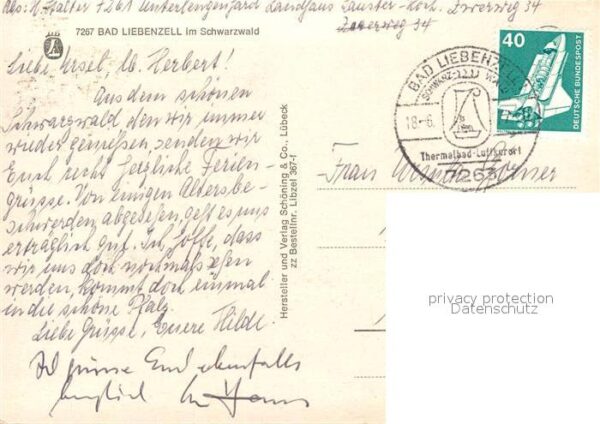 Abs: H. Halter 7261 Unterlengenhard Landhaus Zwerweg 34
Zwerweg 34
7267 BAD LIEBENZELL im Schwarzwald
Liebe Ursel, lb. Herbert!
Aus dem schönen
Schwarzwald den wir immer
wieder genießen, senden wir
Euch recht herzliche Ferien-
grüsse. Von einigen Altersbe-
schwerden abgesehen, geht es uns
erträglich gut. Ich hoffe, dass
wir uns doch nochmals sehen
werden, kommt doch einmal
in die schöne Pfalz.
Liebe Grüsse, Eueere Hilde.
Ich grüsse Euch ebenfalls
herzlich Hans
Hersteller und Verlag Schöning & Co., Lübeck
zz Bestellnr. Libzel 367-f
BAD LIEBENZELL
SCHWARZWALD
18.-6.
Thermalbad-Luftkurort
7263
40
DEUTSCHE BUNDESPOST
Frau Ursula
privacy protection
Datenschutz